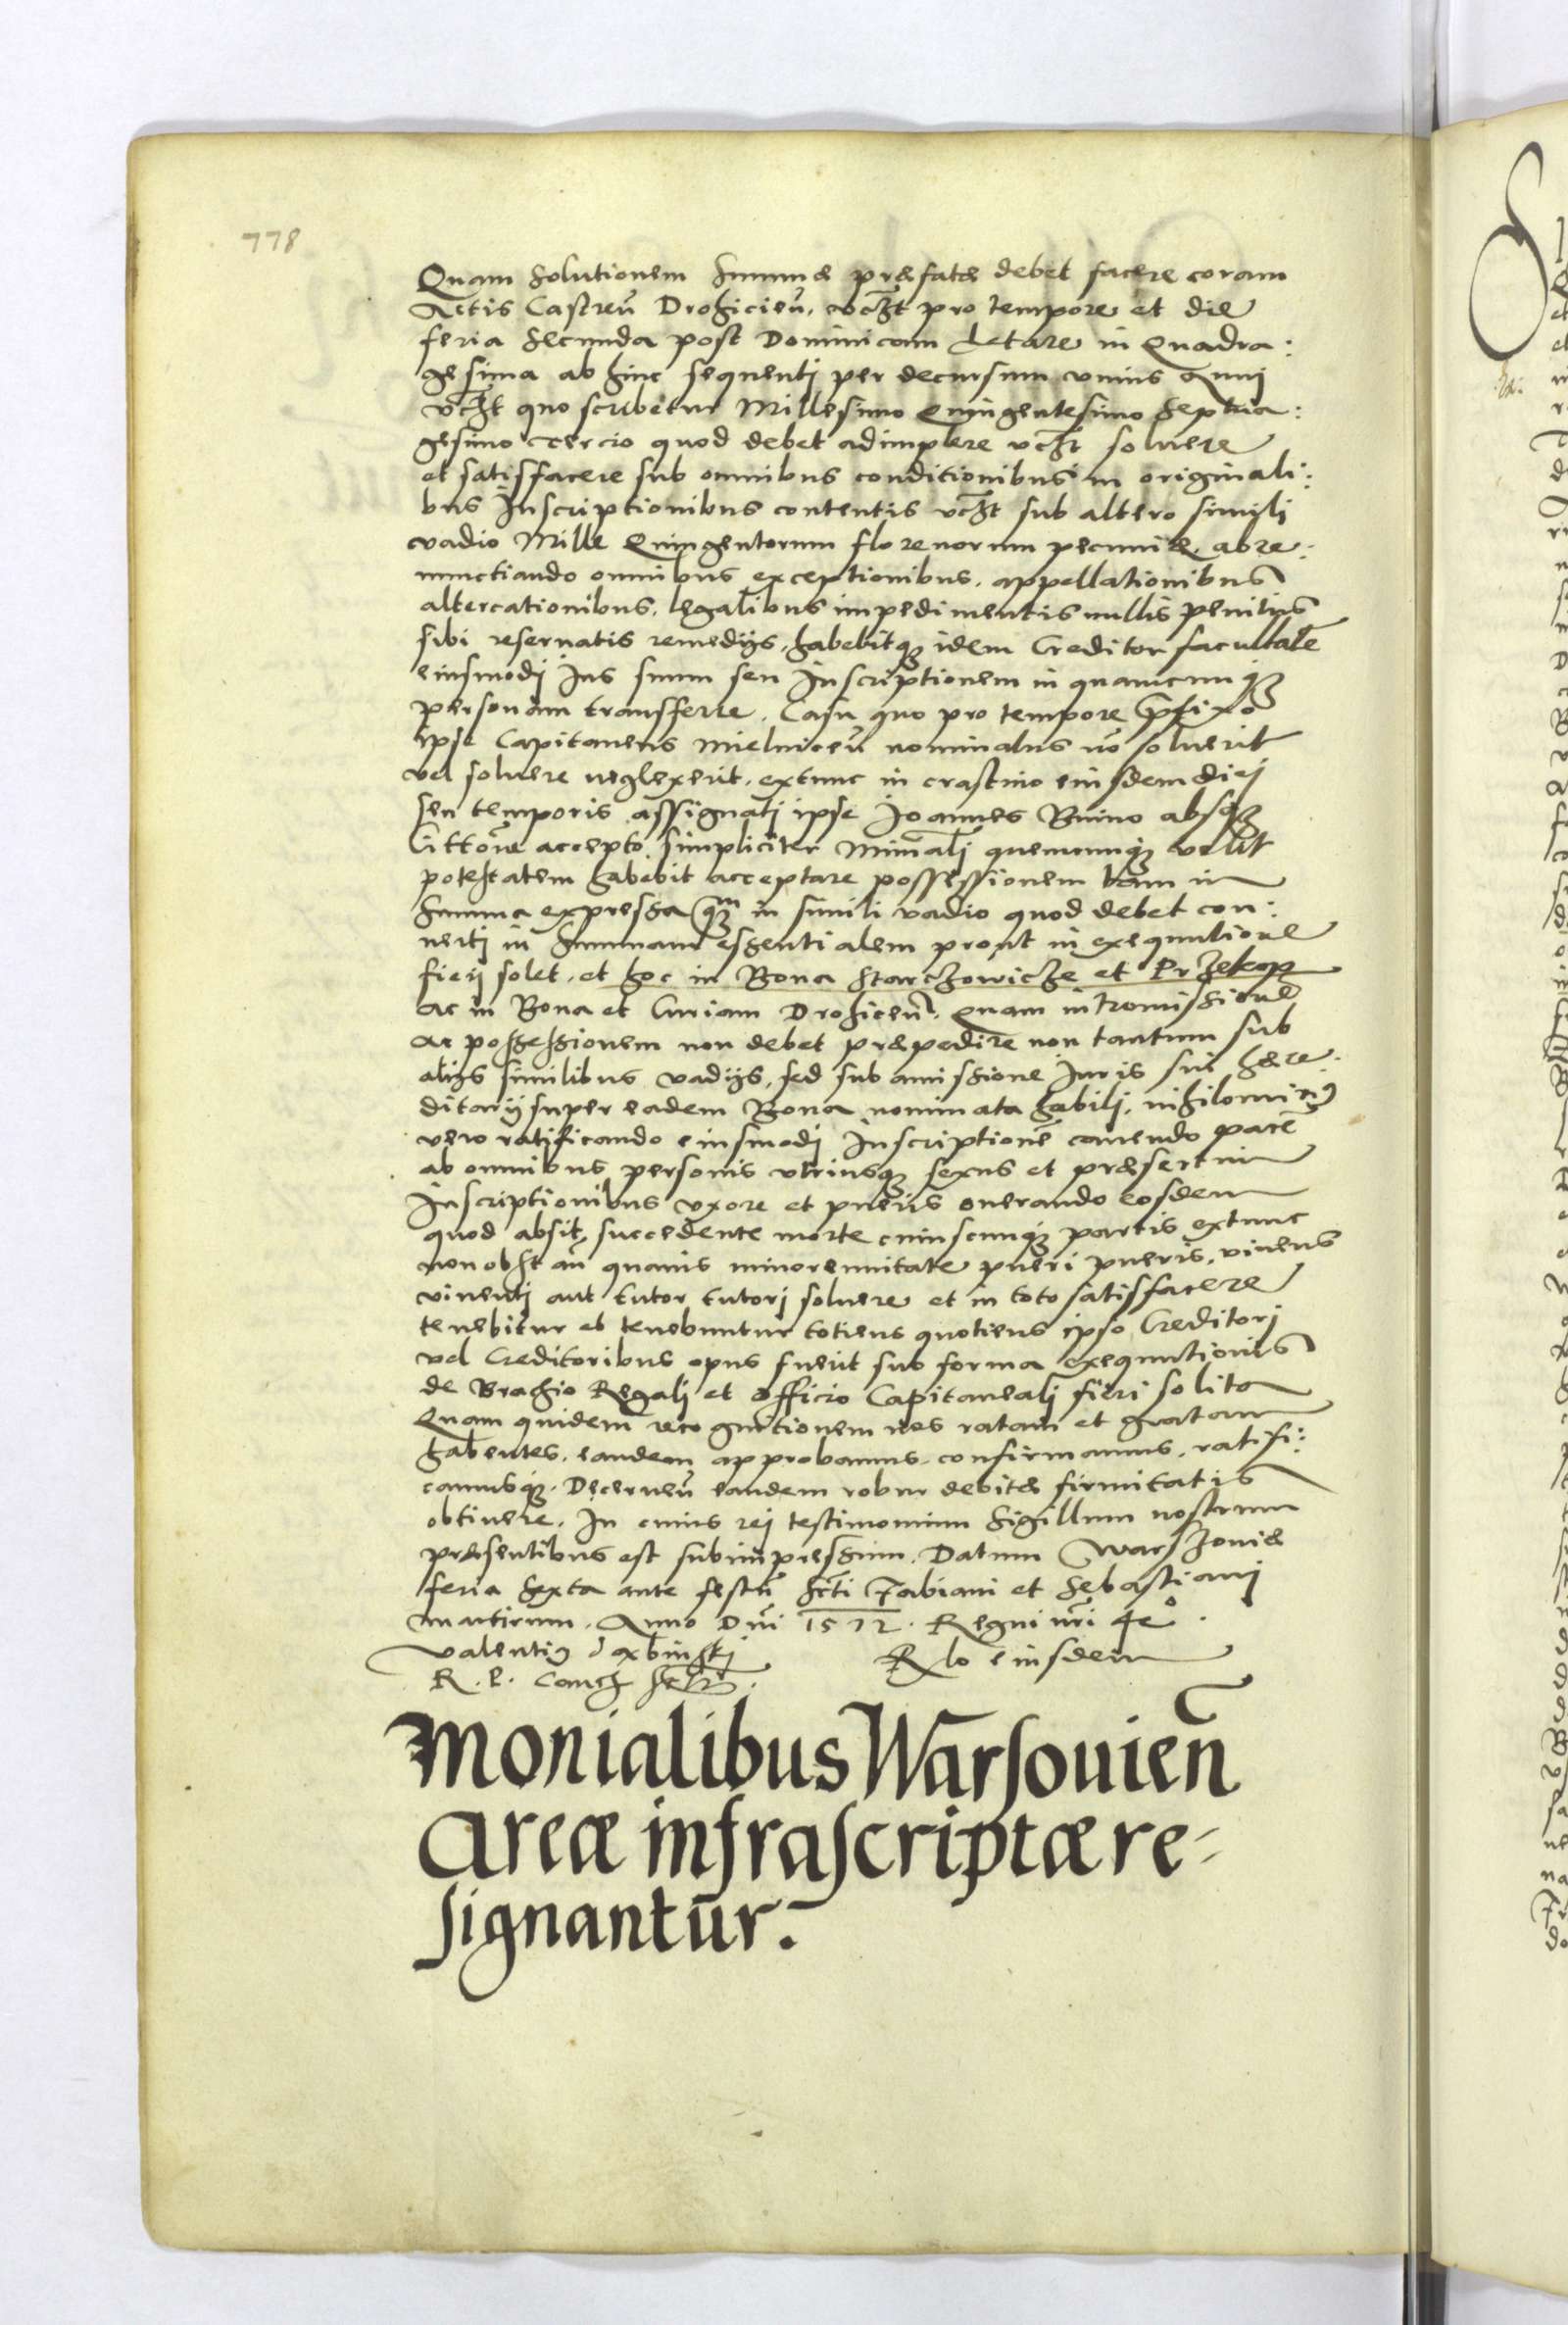 778
Quam Solutionem Summæ præfatæ debet facere coram
Actis Castren̄ Drohicien̄. vc̄zt pro tempore et die
feria Secunda post Dominicam Letare in Quadra:
gesima ab hinc sequenti per decursum vnius Anni
vc̄zt quo scribetur Millesimo Quingentesimo Septua:
gesimo Tercio quod debet adimplere vc̄zt soluere
et satisfacere sub omnibus conditionibus in originali:
bus Inscriptionibus contentis vc̄zt sub altero simili
vadio Mille Quingentorum florenorum pecuniæ. abre:
nunctiando omnibus exceptionibus. appellationibus
altercationibus. legalibus impedimentis nullis penitus
sibi reseruatis remedijs. habebitqꝫ idem Creditor facultatē
eiusmodi Ius suum seu Inscriptionem in quamcunqꝫ
personam transferre. Casu quo pro tempore p̄fixo
ipse Capitaneus Mielnicen̄ nominatus nō soluerit
vel soluere neglexerit. extunc in crastino eiusdem diei
seu temporis assignati ipse Joannes Buino absqꝫ
Littōne accepto simpliciter Min̄ali quemcunqꝫ velit
potestatem habebit acceptare possessionem tam in
Summa expressa qꝫm in simili vadio quod debet con:
uerti in Summam essentialem prout in exequutione
fieri solet. et hoc in Bona Starczowicze et Przekop
ac in Bona et Curiam Drohicen̄. Quam intromissionē
ac possessionem non debet præpedire non tantum sub
alijs similibus vadijs, sed sub amissione Juris sui hære:
ditarij super eadem Bona nominata habili. nihilominꝰ
vero ratificando eiusmodi Inscriptionē cauendo pacē
ab omnibus personis vtriusqꝫ sexus et præsertim
Inscriptionibus vxore et pueris onerando eosdem
quod absit, succedente morte cuiuscunqꝫ partis extunc
non obst an̄ quauis minorennitate pueri pueris. viuens
viuenti aut tutor tutori soluere et in toto satisfacere
tenebitur et tenebuntur totiens quotiens ipso Creditori
vel Creditoribus opus fuerit sub forma exequutionis
de Brachio Regali et officio Capitaneali fieri solito
Quam quidem recognitionem nos ratam et gratam
habentes. eandem approbamus. confirmamus. ratifi:
camusqꝫ. Decernen̄ eandem robur debitæ firmitatis
obtinere. In cuius rei testimonium Sigillum nostrum
præsentibus est subimpressum. Datum Warszoviæ
feria Sexta ante festū Scti Fabiani et Sebastiani
martirum. Anno Dn̄i 1572. Regni nr̄i 4eº.
Valentinꝰ Daxbinski
R. P. Canc
Rlo eiusdem
Monialibus Warsouien̄
Areæ infrascriptæ re-
signantur.